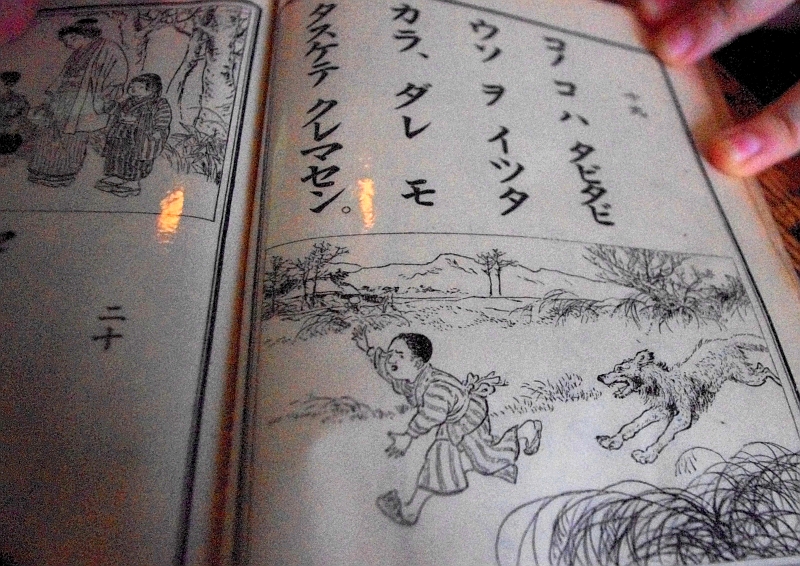 十九
コノ コ ハ タビタビ
ウソ ヲ イツタ
カラ、ダレ モ
タスケテ クレマセン。
二十